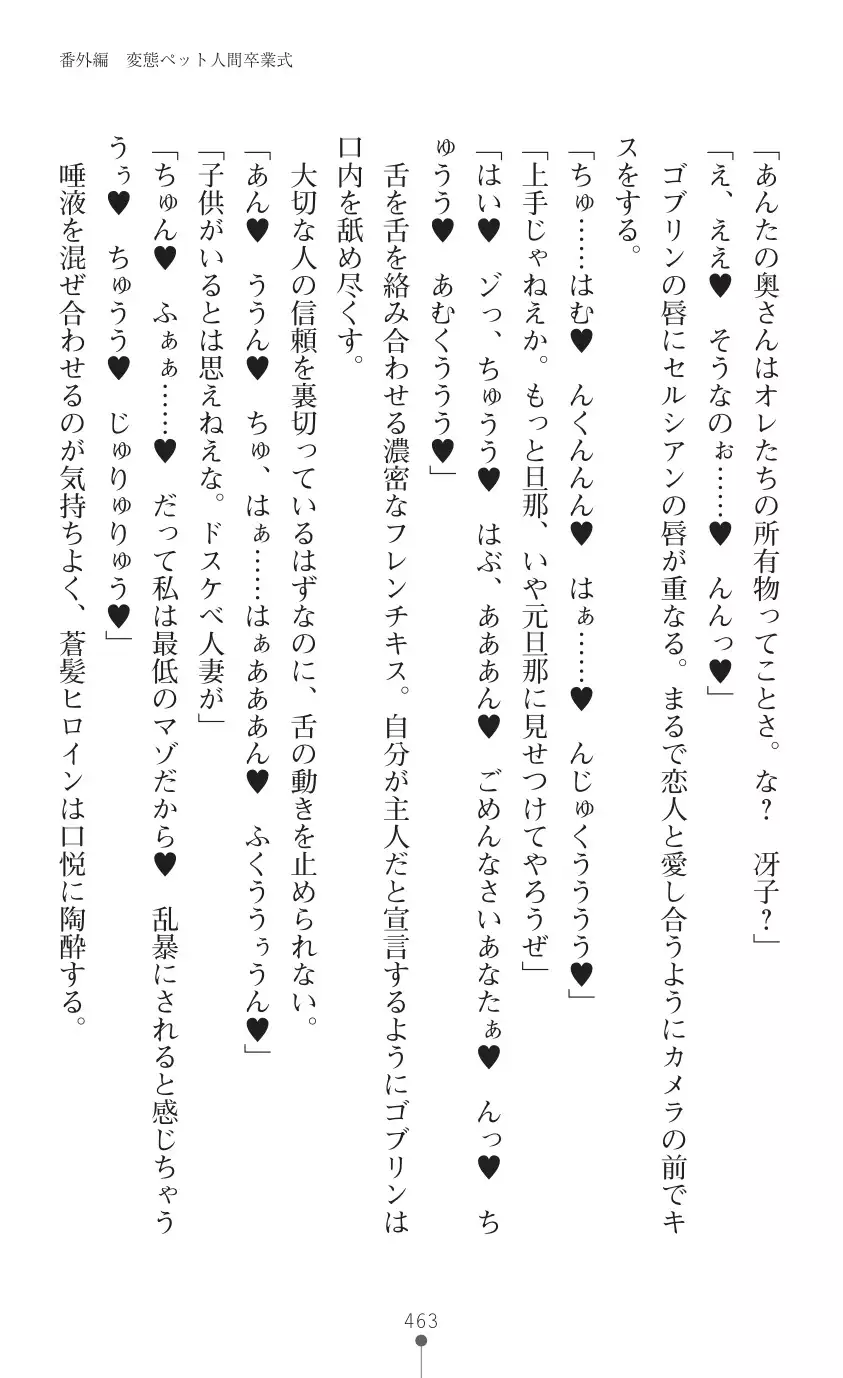 番外編　変態ペット人間卒業式
「あんたの奥さんはオレたちの所有物ってことさ。な？　冴子？」
「え、ええ♥　そうなのぉ……♥　んんっ♥」
　ゴブリンの唇にセルシアンの唇が重なる。まるで恋人と愛し合うようにカメラの前でキ
スをする。
「ちゅ……はむ♥　んくんんん♥　はぁ……♥　んじゅくうううう♥」
「上手じゃねえか。もっと旦那、いや元旦那に見せつけてやろうぜ」
「はい♥　ゾっ、ちゅうう♥　はぶ、あああん♥　ごめんなさいあなたぁ♥　んっ♥　ち
ゅうう♥　あむくううう♥」
　舌を舌を絡み合わせる濃密なフレンチキス。自分が主人だと宣言するようにゴブリンは
口内を舐め尽くす。
　大切な人の信頼を裏切っているはずなのに、舌の動きを止められない。
「あん♥　ううん♥　ちゅ、はぁ……はぁあああん♥　ふくううぅうん♥」
「子供がいるとは思えねえな。ドスケベ人妻が」
「ちゅん♥　ふぁぁ……♥　だって私は最低のマゾだから♥　乱暴にされると感じちゃう
うぅ♥　ちゅうう♥　じゅりゅりゅう♥」
　唾液を混ぜ合わせるのが気持ちよく、蒼髪ヒロインは口悦に陶酔する。
463